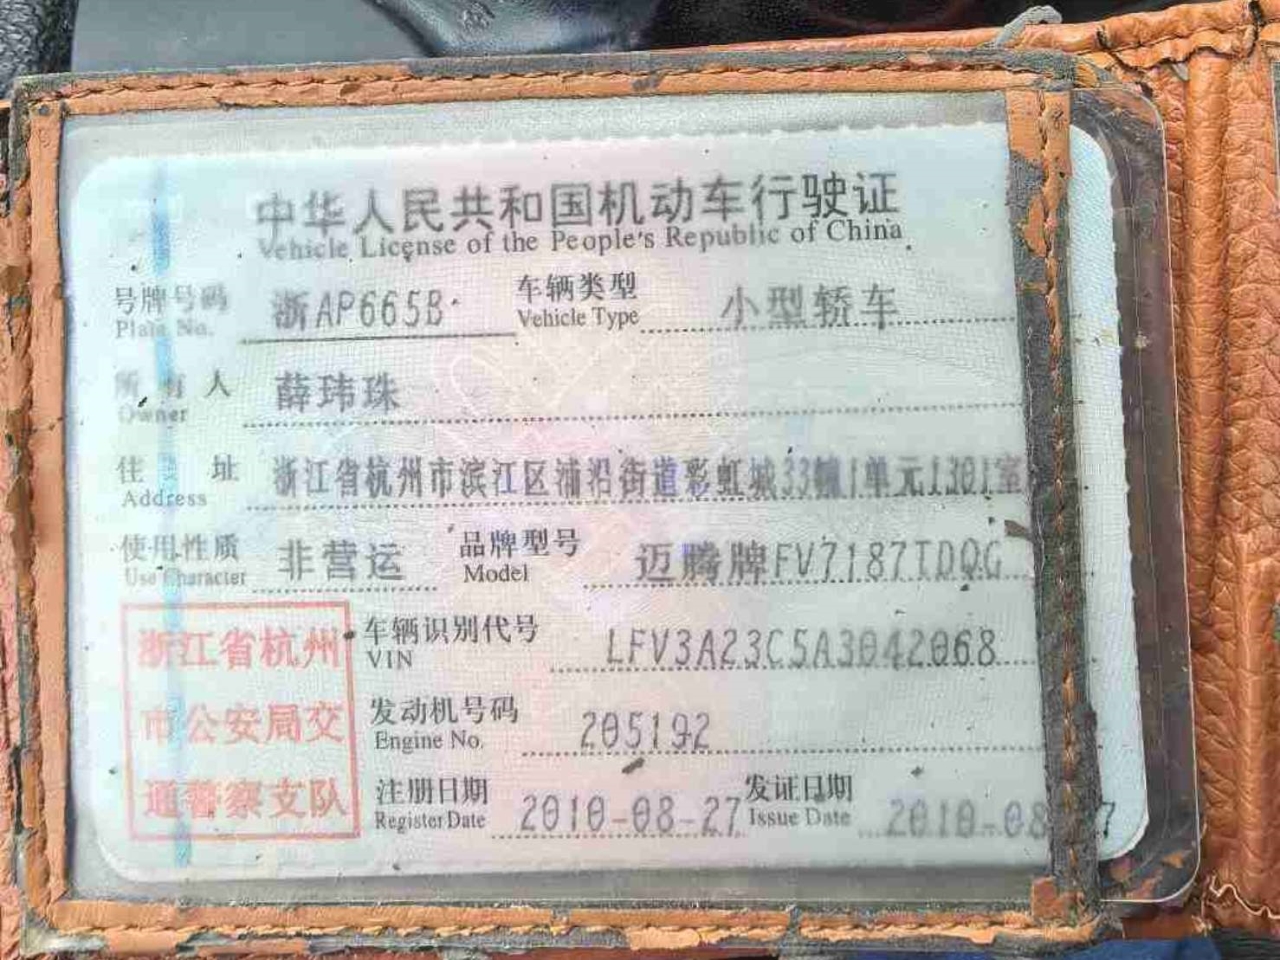 中华人民共和国机动车行驶证
Vehicle License of the People's Republic of China
号牌号码 浙AP665B 车辆类型 小型轿车
Plate No. Vehicle Type
所有人 薛玮珠
Owner
住址 浙江省杭州市滨江区浦沿街道彩虹城33幢1单元1301室
Address
使用性质 非营运 品牌型号 迈腾牌FV7187TDQG
Use Character Model
浙江省杭州 车辆识别代号 LFV3A23C5A3042068
VIN
市公安局交 发动机号码 205192
Engine No.
通警察支队 注册日期 2010-08-27 发证日期 2010-08
Register Date Issue Date